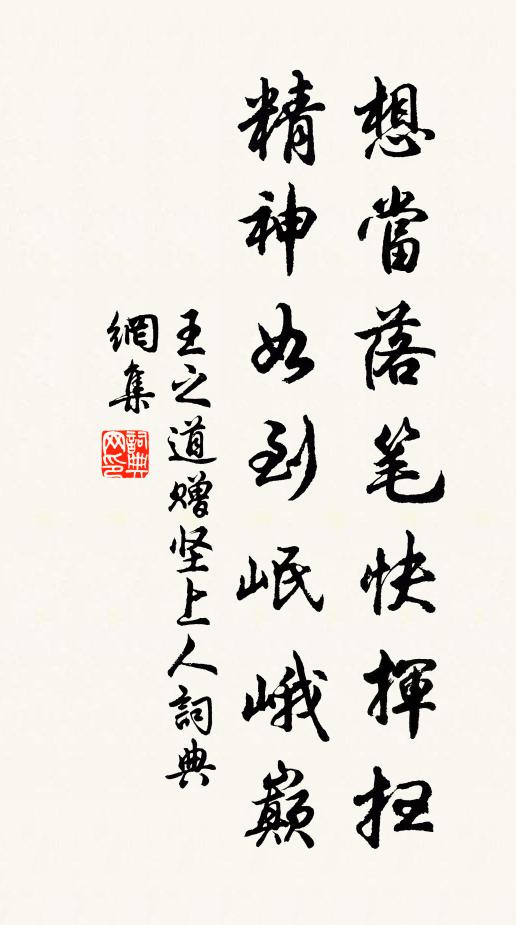 想當落笔快揮扫
精神如到岷峨巅
王之道赠坚上人詞典
網集
詞典网印